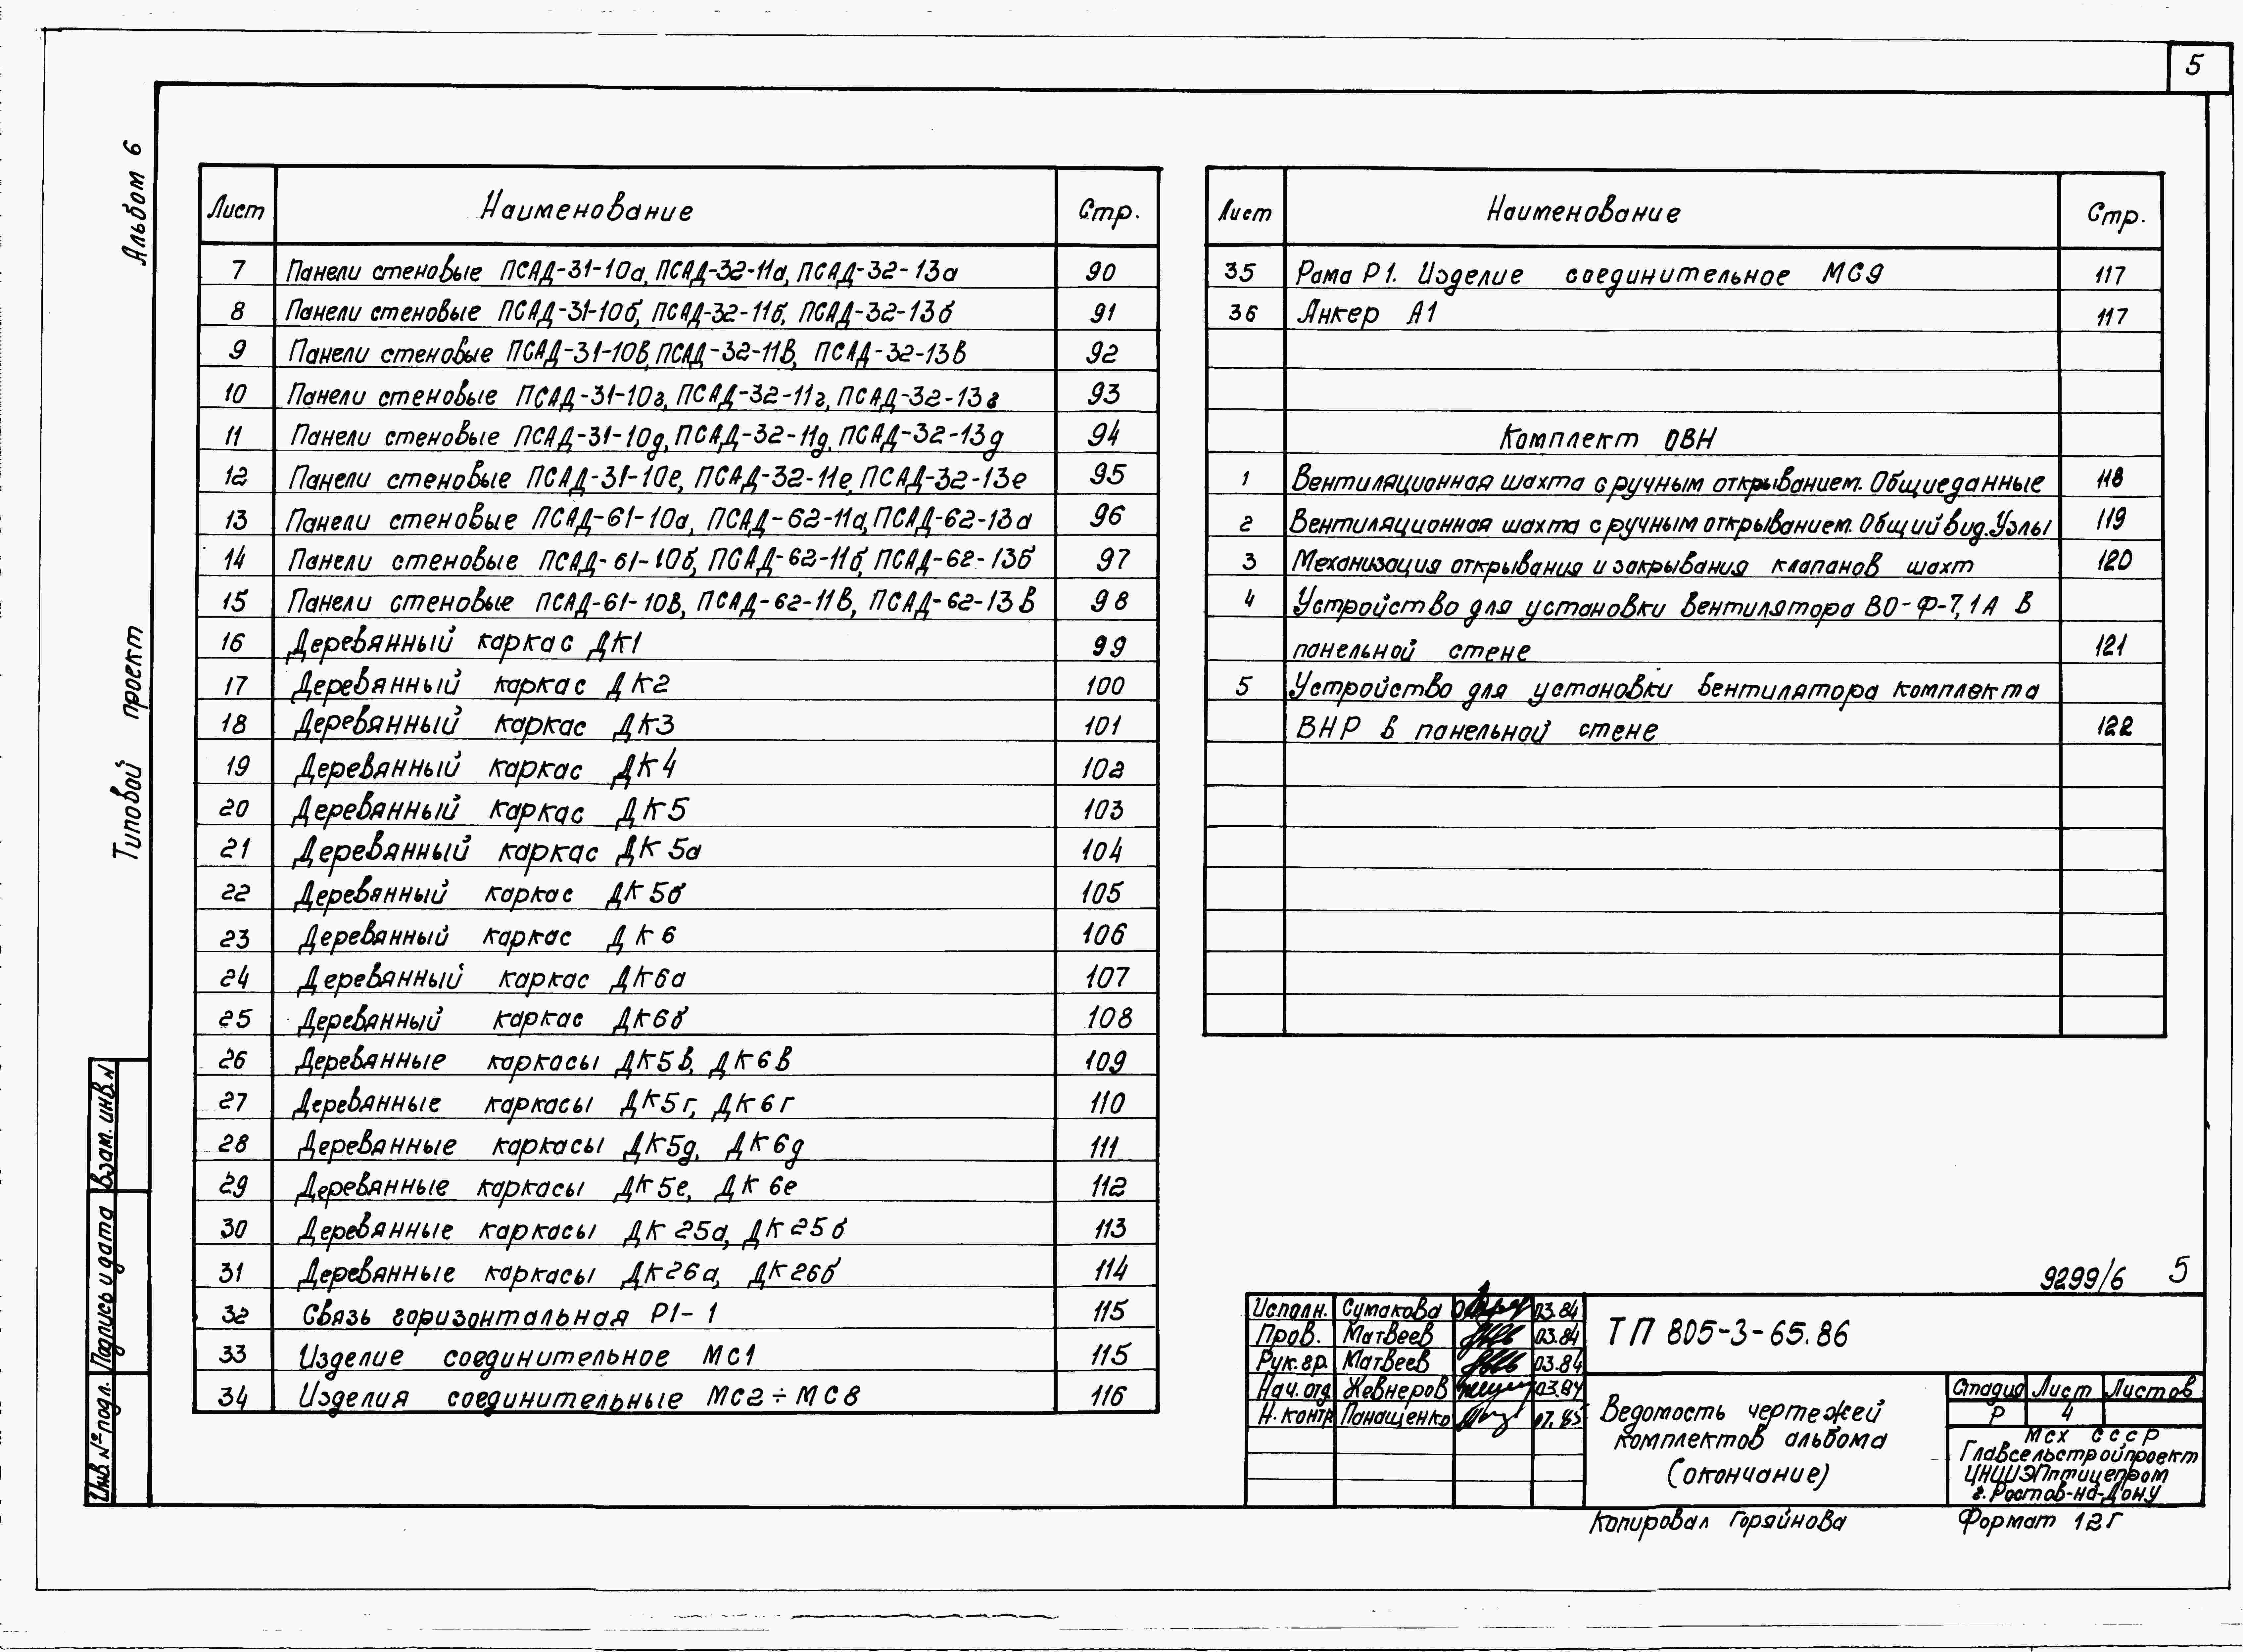 5
Альбом 6
Типовой проект
Лист Наименование Стр.
7 Панели стеновые ПСАД-31-10а, ПСАД-32-11а, ПСАД-32-13а 90
8 Панели стеновые ПСАД-31-10б, ПСАД-32-11б, ПСАД-32-13б 91
9 Панели стеновые ПСАД-31-10в, ПСАД-32-11в, ПСАД-32-13в 92
10 Панели стеновые ПСАД-31-10г, ПСАД-32-11г, ПСАД-32-13г 93
11 Панели стеновые ПСАД-31-10д, ПСАД-32-11д, ПСАД-32-13д 94
12 Панели стеновые ПСАД-31-10е, ПСАД-32-11е, ПСАД-32-13е 95
13 Панели стеновые ПСАД-61-10а, ПСАД-62-11а, ПСАД-62-13а 96
14 Панели стеновые ПСАД-61-10б, ПСАД-62-11б, ПСАД-62-13б 97
15 Панели стеновые ПСАД-61-10в, ПСАД-62-11в, ПСАД-62-13в 98
16 Деревянный каркас ДК1 99
17 Деревянный каркас ДК2 100
18 Деревянный каркас ДК3 101
19 Деревянный каркас ДК4 102
20 Деревянный каркас ДК5 103
21 Деревянный каркас ДК5а 104
22 Деревянный каркас ДК5б 105
23 Деревянный каркас ДК6 106
24 Деревянный каркас ДК6а 107
25 Деревянный каркас ДК6б 108
26 Деревянные каркасы ДК5в, ДК6в 109
27 Деревянные каркасы ДК5г, ДК6г 110
28 Деревянные каркасы ДК5д, ДК6д 111
29 Деревянные каркасы ДК5е, ДК6е 112
30 Деревянные каркасы ДК25а, ДК25б 113
31 Деревянные каркасы ДК26а, ДК26б 114
32 Связь горизонтальная Р1-1 115
33 Изделие соединительное МС1 115
34 Изделия соединительные МС2÷МС8 116
Лист Наименование Стр.
35 Рама Р1. Изделие соединительное МС9 117
36 Анкер А1 117
Комплект ОВН
1 Вентиляционная шахта с ручным открыванием. Общие данные 118
2 Вентиляционная шахта с ручным открыванием. Общий вид. Узлы 119
3 Механизация открывания и закрывания клапанов шахт 120
4 Устройство для установки вентилятора ВО-Ф-7,1А в
панельной стене 121
5 Устройство для установки вентилятора комплекта
ВНР в панельной стене 122
9299/6 5
Исполн. Сумакова 03.84
Пров. Матвеев 03.84
Рук. гр. Матвеев 03.84
Нач. отд. Жевнеров 03.84
Н. контр. Панащенко 07.85
ТП 805-3-65.86
Ведомость чертежей
комплектов альбома
(окончание)
Стадия Лист Листов
Р 4
МСХ СССР
Главсельстройпроект
ЦНИИЭПптицепром
г. Ростов-на-Дону
Копировал Горяйнова
Формат 12Г
Взам. инв. N
Подпись и дата
Инв. № подл.